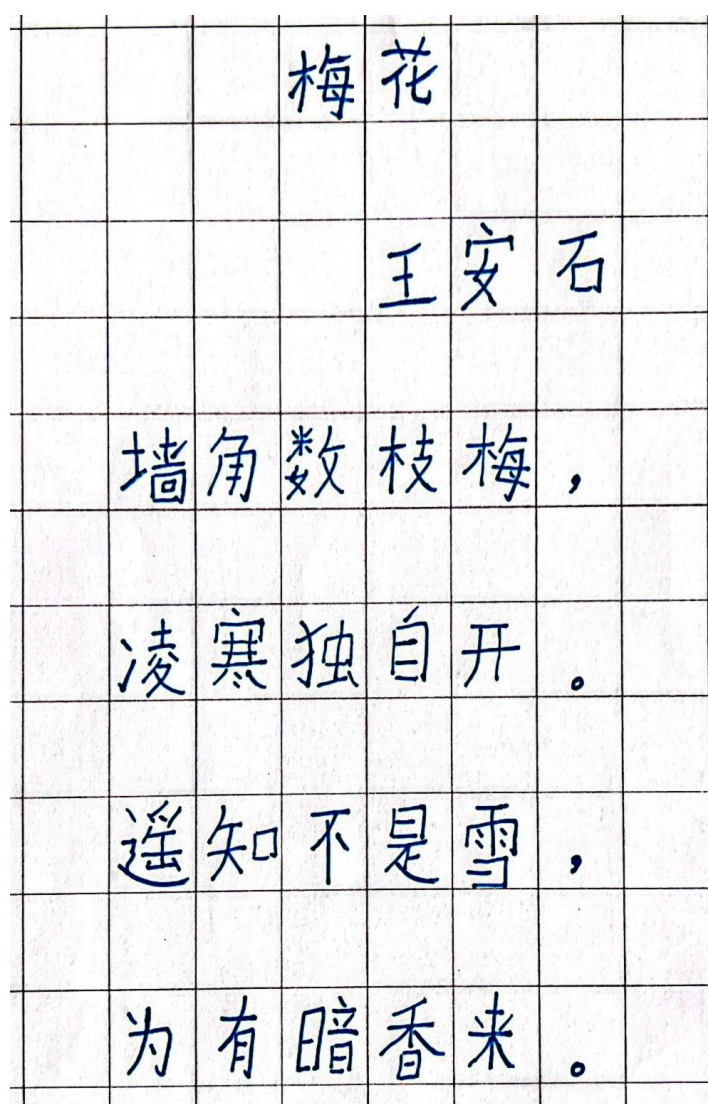 梅花
王安石
墙角数枝梅，
凌寒独自开。
遥知不是雪，
为有暗香来。